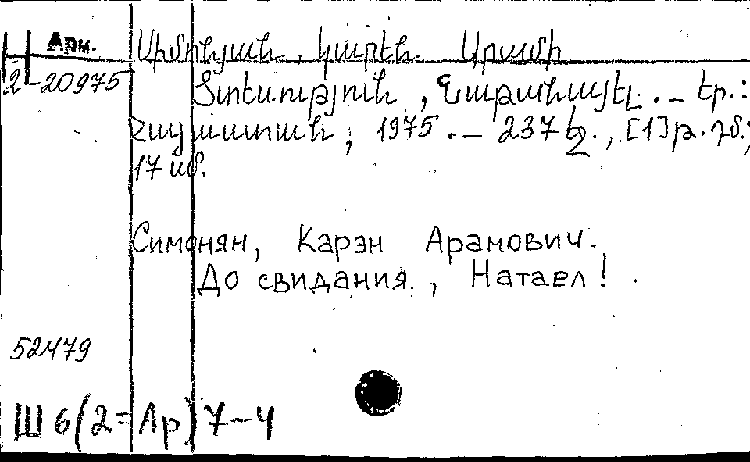 Арм. Սիմոնյան, Կարեն Արամի
2-20975 Ցտեսություն, Նաթանայել. — Եր.:
Հայաստան, 1975. — 237 էջ., [1] թ. դմ.;
17 սմ.
Симонян, Карэн Арамович.
До свидания, Натаел!
52479
Ш6(2=Ар)7-4